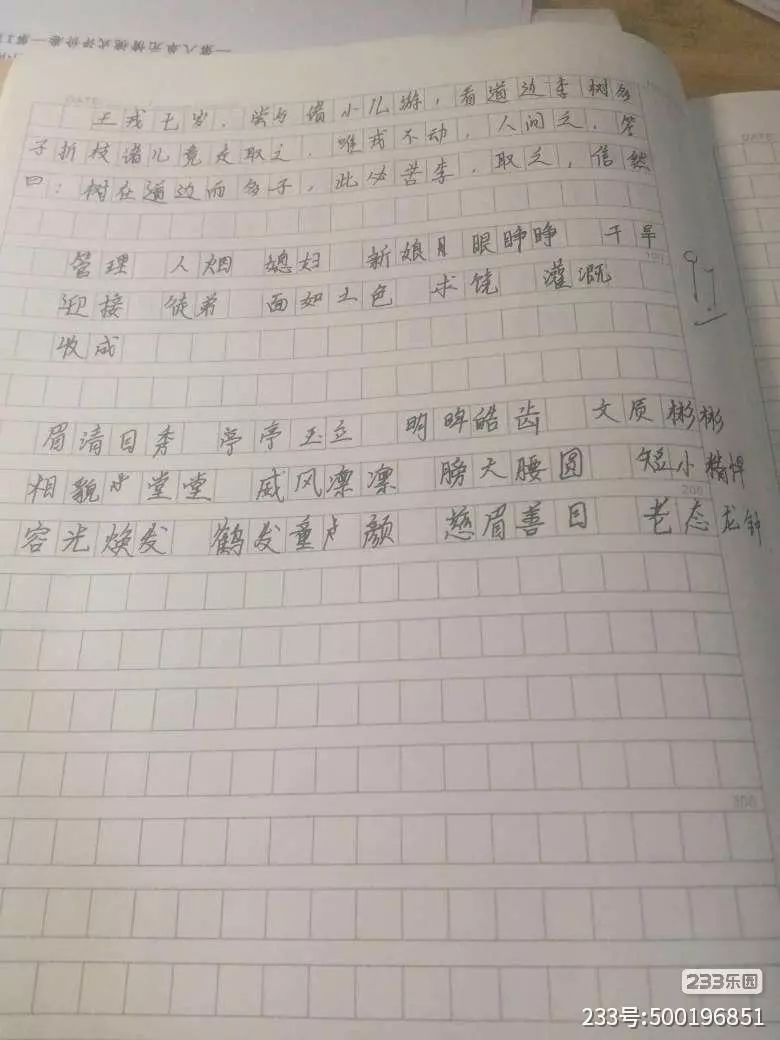 第八单元情境式评价卷—第3
DATE
王戎七岁，尝与诸小儿游，看道边李树多
子折枝诸儿竞走取之，唯戎不动，人问之，答
曰：树在道边而多子，此必苦李，取之，信然
管理 人烟 媳妇 新娘 眼睁睁 干旱
100
迎接 徒弟 面如土色 求饶 灌溉
收成
眉清目秀 亭亭玉立 明眸皓齿 文质彬彬
相貌堂堂 威风凛凛 膀大腰圆 短小精悍
200
容光焕发 鹤发童颜 慈眉善目 老态龙钟
300
DATE
233乐园
233号:500196851